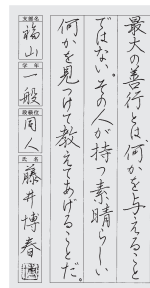 最大の善行とは、何かを与えること
ではない。その人が持つ素晴らしい
何かを見つけて教えてあげることだ。
支部名
福山
学年
一般
段級位
同人
氏名
藤井博春